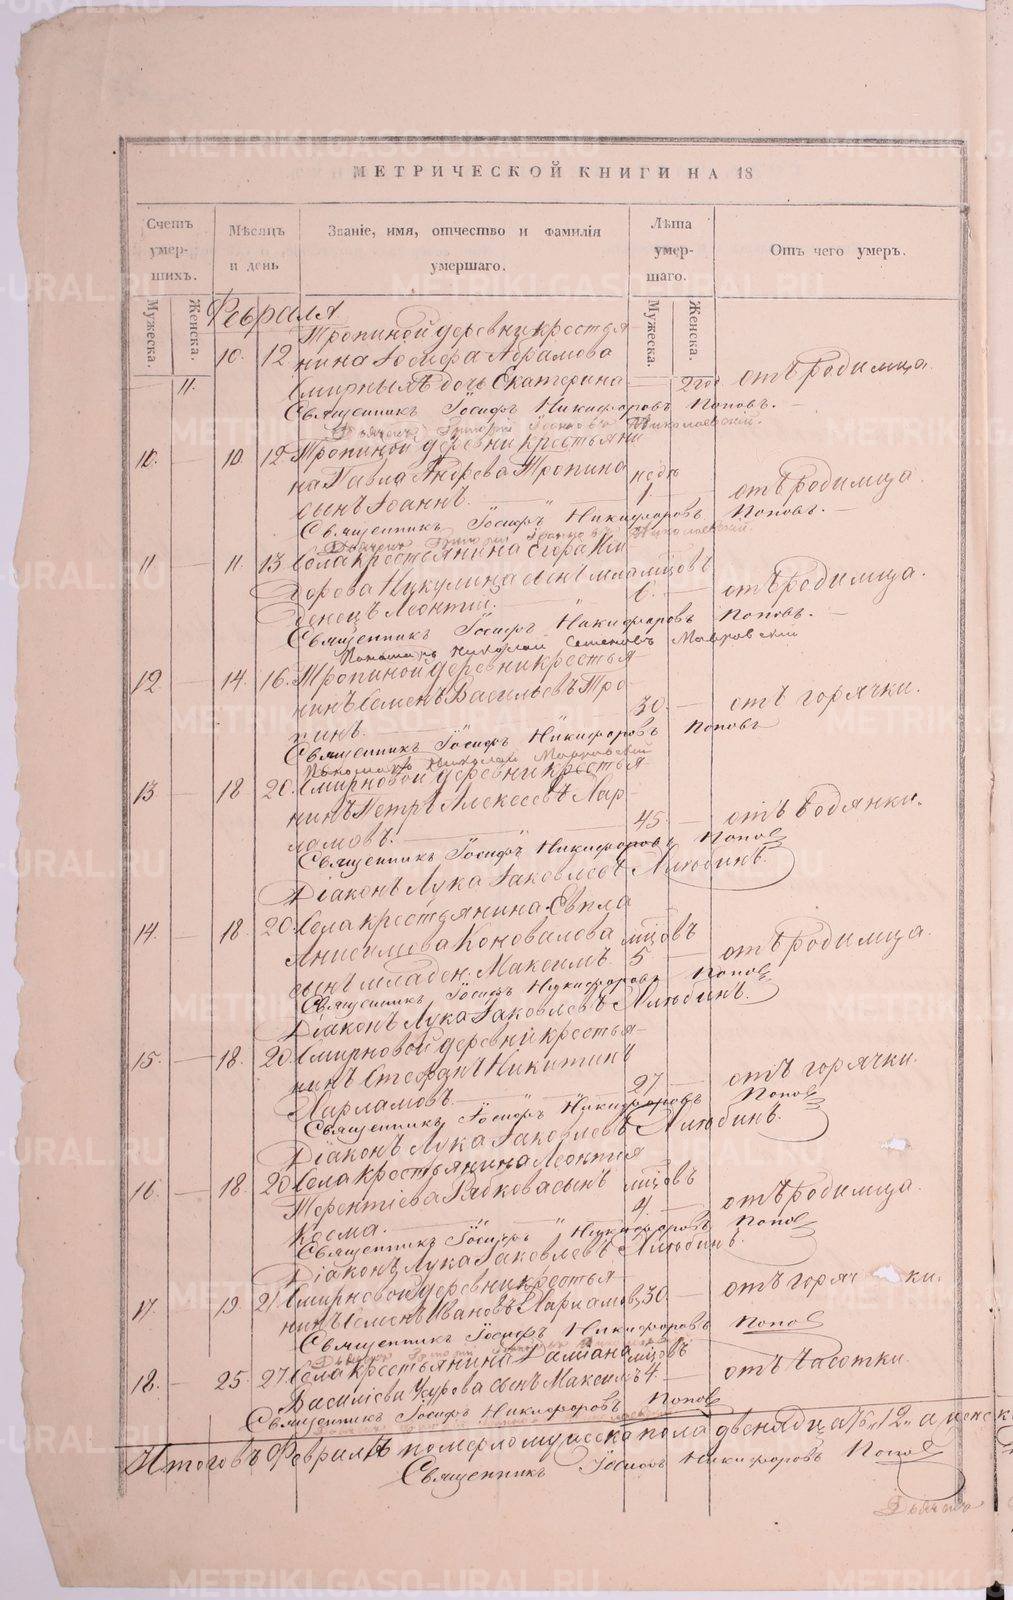 МЕТРИЧЕСКОЙ КНИГИ НА 18
Счетъ умер- шихъ.
Мѣсяцъ и день
Званіе, имя, отчество и фамилія умершаго.
Лѣта умер- шаго.
Отъ чего умеръ.
Мужеска. Женска. Мужеска. Женска.
Февраля
Тропиной деревни крестья
10. 12 нина Іосифа Абрамова
11. Смирныхъ дочь Екатерина — 2 го отъ родимца.
Священникъ Іосифъ Никифоровъ Поповъ.
Дьячекъ Григорій Николаевскій.
10. — 10. 12 Тропиной деревни крестьяни
на Павла Андреева Тропина недѣ
сынъ Іоаннъ. 1. — отъ родимца.
Священникъ Іосифъ Никифоровъ Поповъ.
Дьячекъ Григорій Николаевскій.
11 — 11. 13 Села крестьянина Егора
Никулина сынъ мла мцовъ
денецъ Леонтій. 6. — отъ родимца.
Священникъ Іосифъ Никифоровъ Поповъ.
Пономарь Николай Семеновъ
12. — 14. 16. Тропиной деревни крестья-
нинъ Семенъ Васильевъ Тро-
пинъ. 30. — отъ горячки.
Священникъ Іосифъ Никифоровъ Поповъ
Пономарь Николай
13 — 18 20. Смирновой деревни крестья-
нинъ Петръ Алексеевъ Хар-
ламовъ. 45. — отъ водянки.
Священникъ Іосифъ Никифоровъ Поповъ
Діаконъ Лука Іаковлевъ
14. — 18. 20. Села крестьянина Евпла
Анисимова Коновалова мцовъ
сынъ младен. Максимъ. 5 — отъ родимца.
Священникъ Іосифъ Никифоровъ Поповъ
Діаконъ Лука Іаковлевъ
15. — 18. 20. Смирновой деревни крестья-
нинъ Стефанъ Никитинъ
Харламовъ. 27 — отъ горячки.
Священникъ Іосифъ Никифоровъ Поповъ
Діаконъ Лука Іаковлевъ
16 — 18 20 Села крестьянина Леонтія
Терентіева Рябкова сынъ мцовъ
Косма. 4. — отъ родимца.
Священникъ Іосифъ Никифоровъ Поповъ
Діаконъ Лука Іаковлевъ
17. 19. 21 Смирновой деревни крестья-
нинъ Семенъ Ивановъ Харламовъ 30. — отъ горяч ки.
Священникъ Іосифъ Никифоровъ Поповъ
18. — 25. 27 Села крестьянина Даміана мцовъ
Василіева сынъ Максимъ 4. — отъ чесотки.
Священникъ Іосифъ Никифоровъ Поповъ
Итого въ Февралѣ померло мужеска пола двенадцать „12„ а женск
Священникъ Іосифъ Никифоровъ Поповъ
Дьячекъ
METRIKI.GASO-URAL.RU